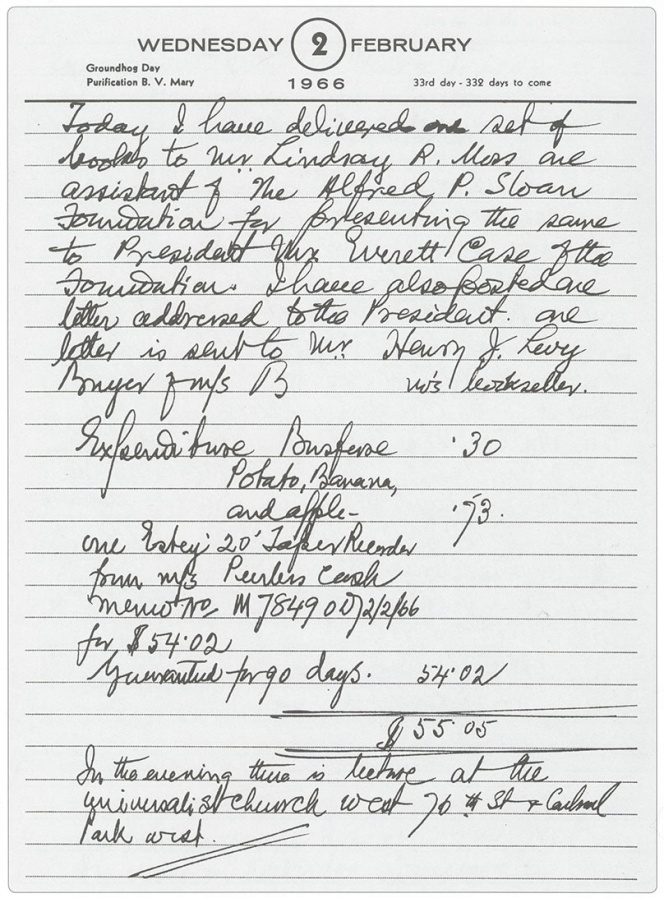 WEDNESDAY 2 FEBRUARY
Groundhog Day
Purification B. V. Mary
1966
33rd day - 332 days to come
Today I have delivered one set of
books to Mr. Lindsay R. Moss one
assistant of The Alfred P. Sloan
Foundation for presenting the same
to President Mr. Everett Case of the
Foundation. I have also posted one
letter addressed to the President. one
letter is sent to Mr. Henry J. Levy
Buyer of m/s B bookseller.
Expenditure Busfare .30
Potato, Banana,
and apple- .73.
one 20' Tape Recorder
from m/s Peerless Cash
memo No. M 78490 D/2/2/66
for $54.02
Guaranteed for 90 days. 54.02
$ 55 05
In the evening there is lecture at the
universalist church west 76th St + Central
Park west.